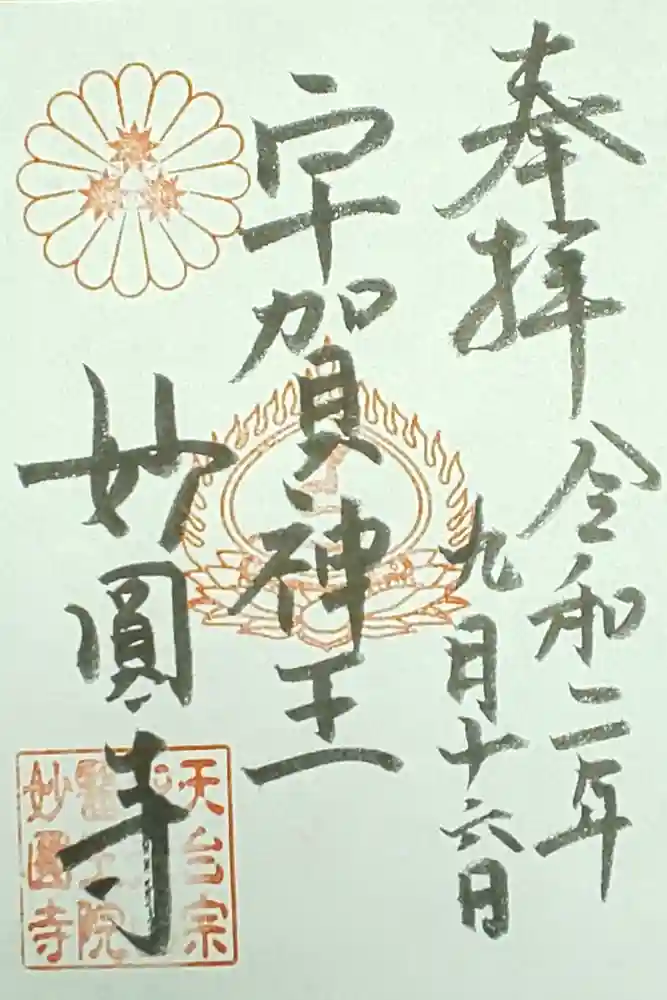 奉拝
令和二年
九月十六日
宇賀神王
妙圓寺
天台宗
醫王院
妙圓寺